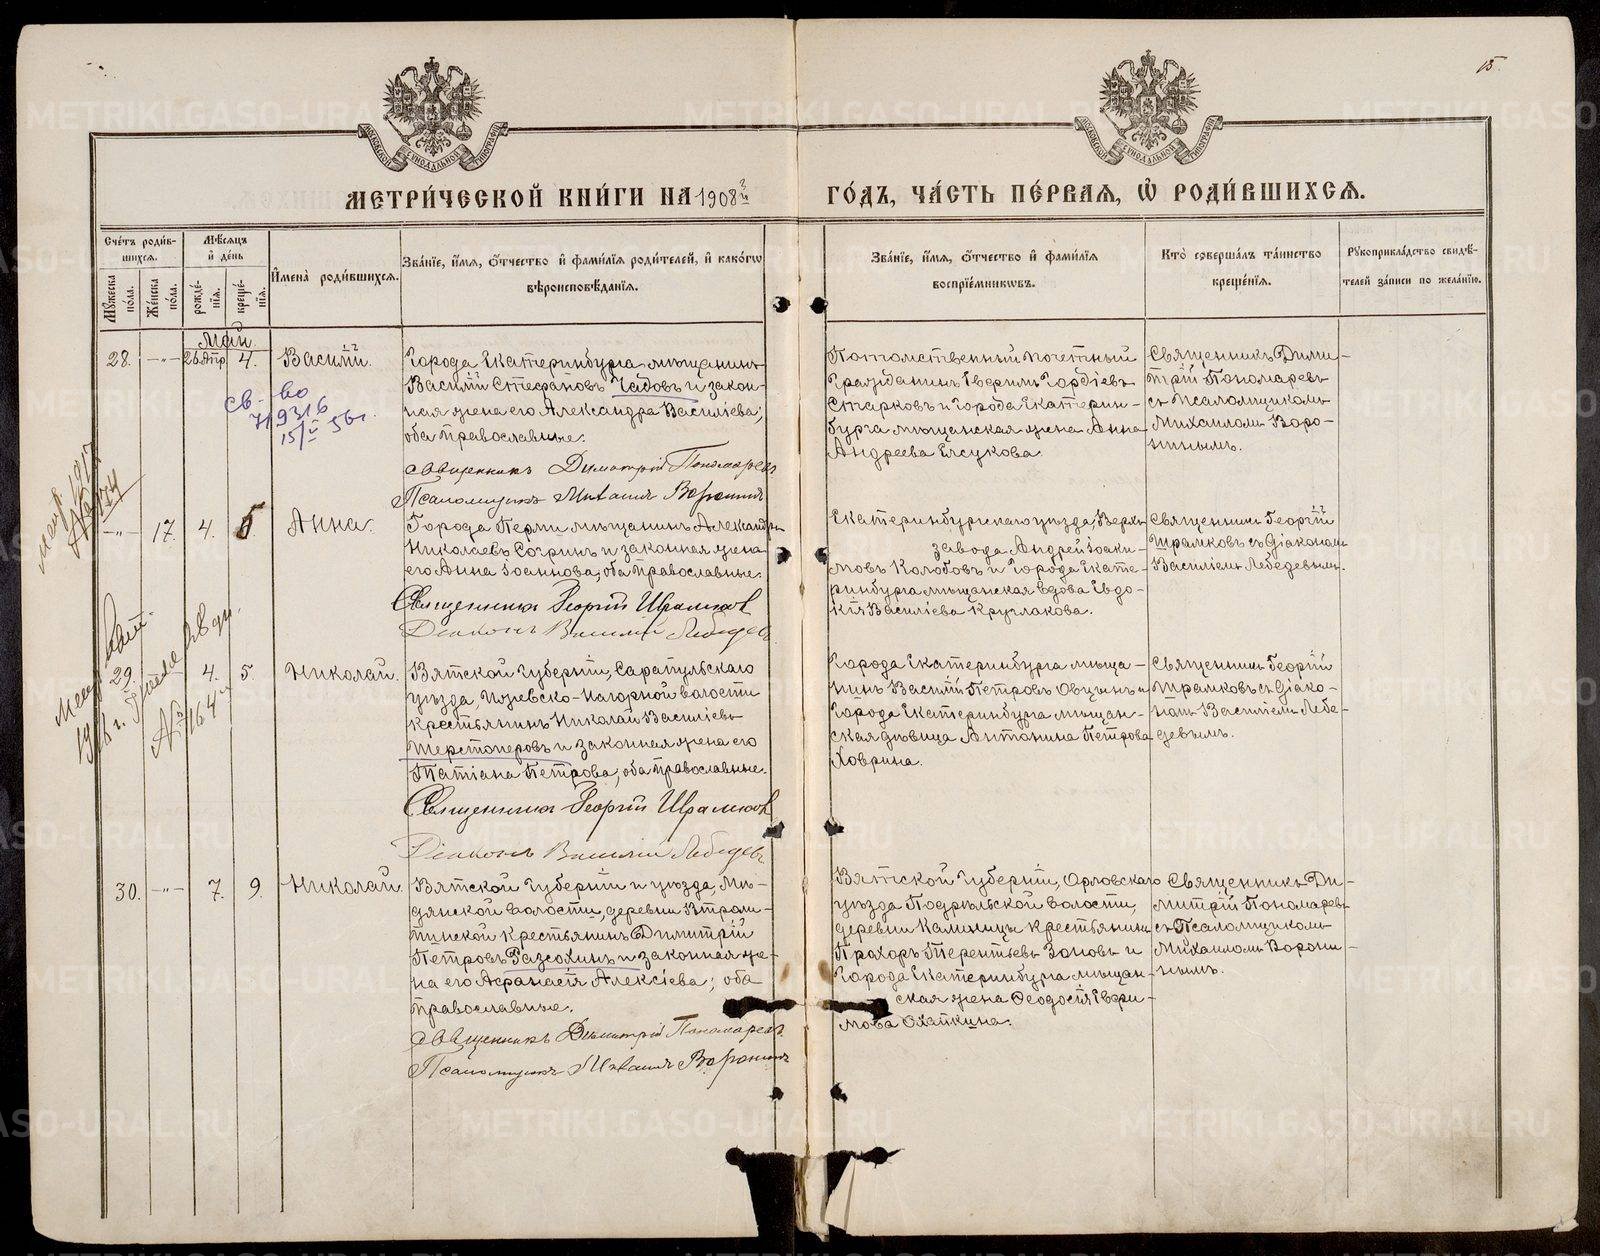 15.
МОСКОВСКОЙ СѴНОДАЛЬНОЙ ТИПОГРАФІИ
МОСКОВСКОЙ СѴНОДАЛЬНОЙ ТИПОГРАФІИ
МЕТРИ́ЧЕСКОЙ КНИ́ГИ НА 1908й
ГО́ДЪ, ЧА́СТЬ ПЕ́РВАЯ, Ѡ РОДИ́ВШИХСЯ.
Сче́тъ роди́в-
шихся.
Мꙋжеска по́ла.
Же́нска по́ла.
Мѣ́сяцъ
и де́нь
рожде́-
нїя.
креще́-
нїя.
Имена̀ роди́вшихся.
Зва́нїе, и́мя, о́тчество и фами́лїя роди́телей, и како́гѡ
вѣроисповѣ́данїя.
Зва́нїе, и́мя, о́тчество и фами́лїя
воспрїе́мникѡвъ.
Кто̀ соверша́лъ та́инство
креще́нїя.
Рꙋкоприкла́дство свидѣ́-
телей за́писи по жела́нїю.
Май.
28. -"- 26 Апр. 4. Василій.
Города Екатеринбурга мѣщанинъ
Василій Стефановъ Чадовъ и закон-
ная жена его Александра Василіева;
оба православные.
Священникъ Димитрій Пономаревъ
Псаломщикъ Михаилъ Воронинъ
Потомственный почетный
Гражданинъ Гордіевъ
Старковъ и города Екатерин-
бурга мѣщанская жена Анна
Андреева Елсукова.
Священникъ Дими-
трій Пономаревъ
съ псаломщикомъ
Михаиломъ Воро-
нинымъ.
св-во
15/II 56 г.
-"- 17. 4. 5. Анна.
Города Перми мѣщанинъ Александръ
Николаевъ Согринъ и законная жена
его Анна Іоаннова, оба православные.
Священникъ Георгій Шрамковъ
Діаконъ Василій Лебедевъ
Екатеринбургскаго уѣзда, Верхъ
завода Андрей Іоаки-
мовъ Колобовъ и города Екате-
ринбурга мѣщанская вдова Евдо-
кія Василіева Круглакова.
Священникъ Георгій
Шрамковъ съ діакономъ
Василіемъ Лебедевымъ.
29. 4. 5. Николай.
Вятской губерніи, Сарапульскаго
уѣзда, Нагорной волости
крестьянинъ Николай Василіевъ
Шерстоперовъ и законная жена его
Татіана Петрова, оба православные.
Священникъ Георгій Шрамковъ
Діаконъ Василій Лебедевъ
Города Екатеринбурга мѣща-
нинъ Василій Петровъ и
города Екатеринбурга мѣщан-
ская дѣвица Антонина Петрова
Ховрина.
Священникъ Георгій
Шрамковъ съ діако-
номъ Василіемъ Лебе-
девымъ.
30. -"- 7. 9. Николай.
Вятской губерніи и уѣзда,
волости, деревни
крестьянинъ Димитрій
Петровъ Разсохинъ и законная же-
на его Афанасія Алексіева; оба
православные.
Священникъ Димитрій Пономаревъ
Псаломщикъ Михаилъ Воронинъ
Вятской губерніи, Орловскаго
уѣзда Подрѣльской волости,
деревни крестьянинъ
Прохоръ Терентьевъ Зоновъ и
города Екатеринбурга мѣщан-
ская жена Ѳеодосія
Охапкина.
Священникъ Ди-
митрій Пономаревъ
съ псаломщикомъ
Михаиломъ Ворони-
нымъ.
METRIKI.GASO-URAL.RU